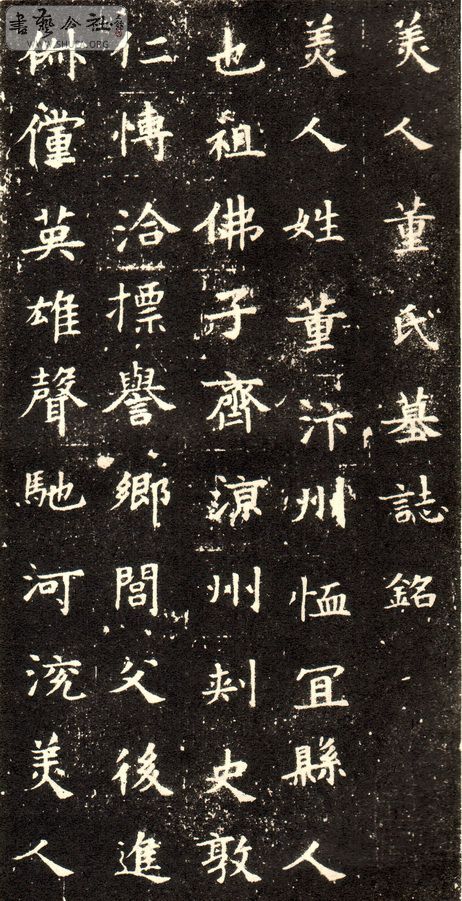 美人董氏墓誌銘
美人姓董汴州恤冝縣人
也祖佛子齊涼州刺史敦
仁慱洽摽譽鄉閭父後進
俶儻英雄聲馳河渷美人
書藝公社
WWW.SHUFA.ORG